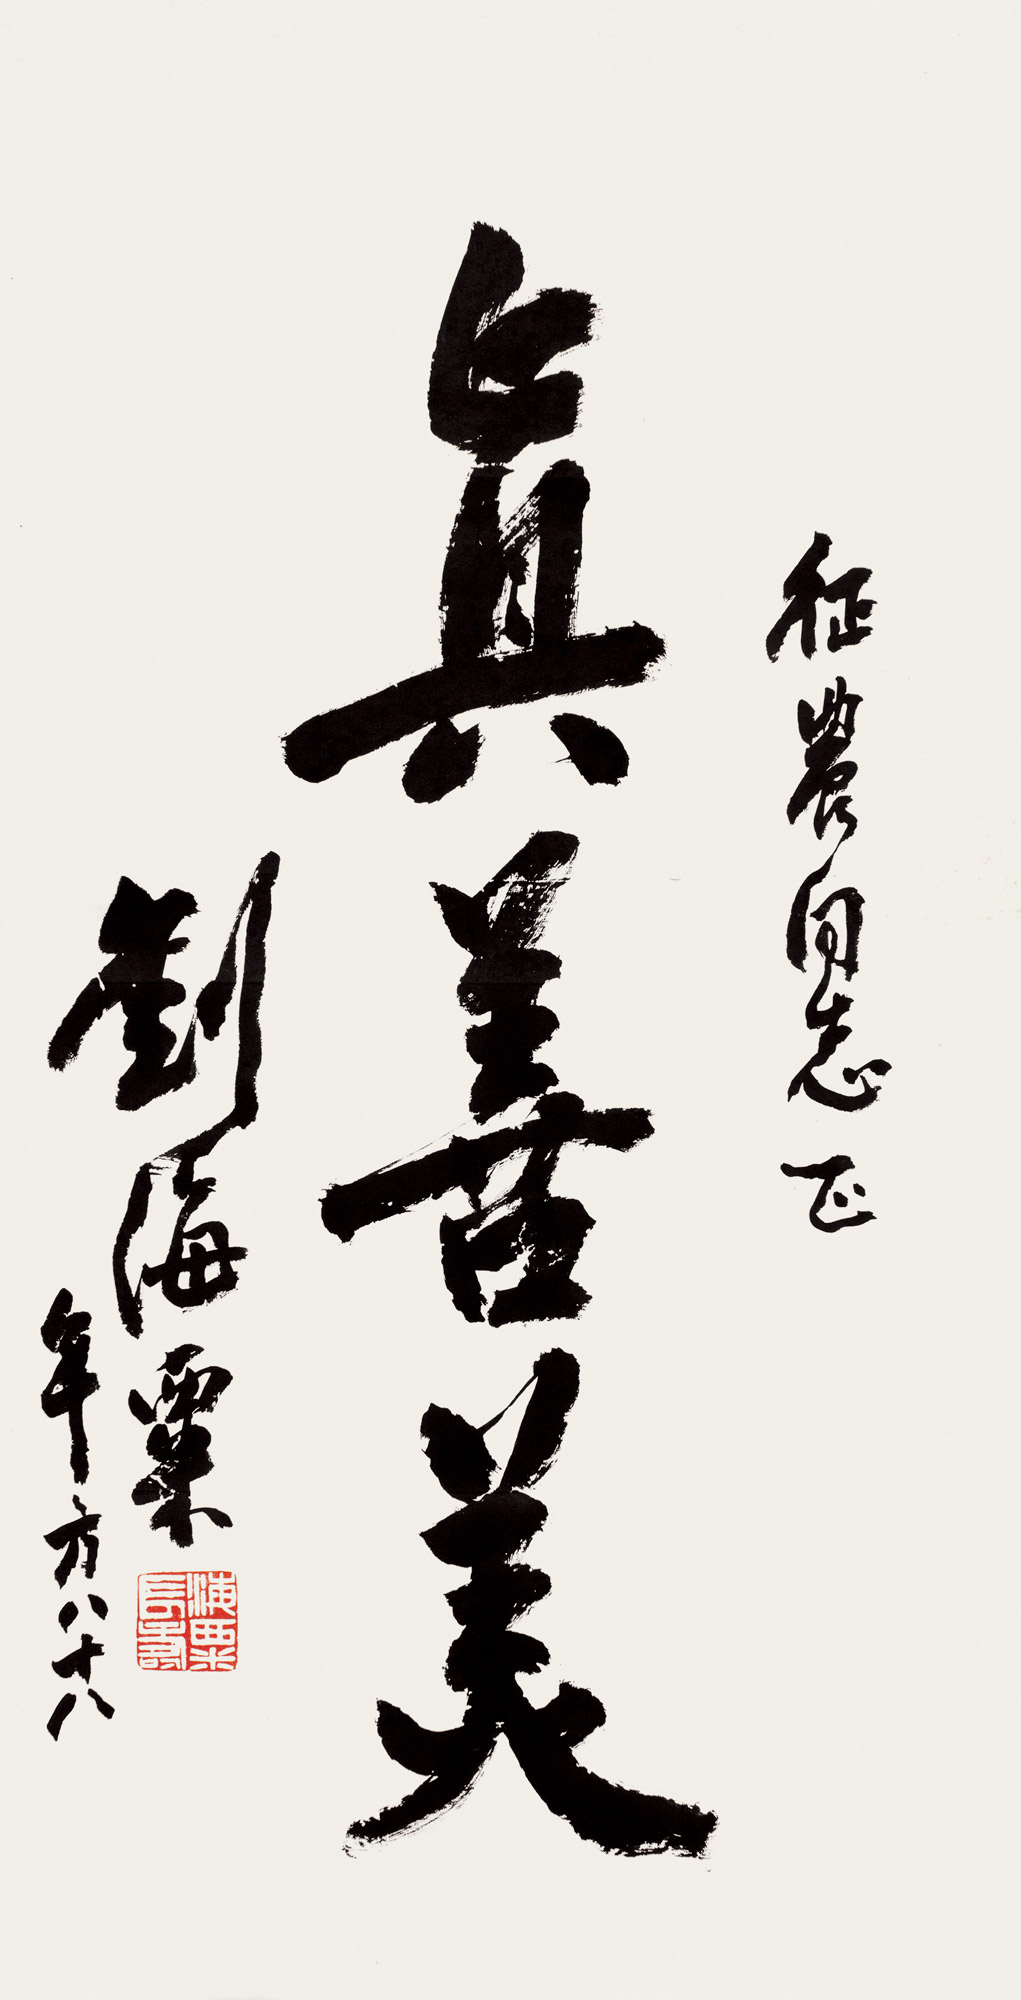 征農同志正
真善美
劉海粟
年方八十八
海粟
長壽